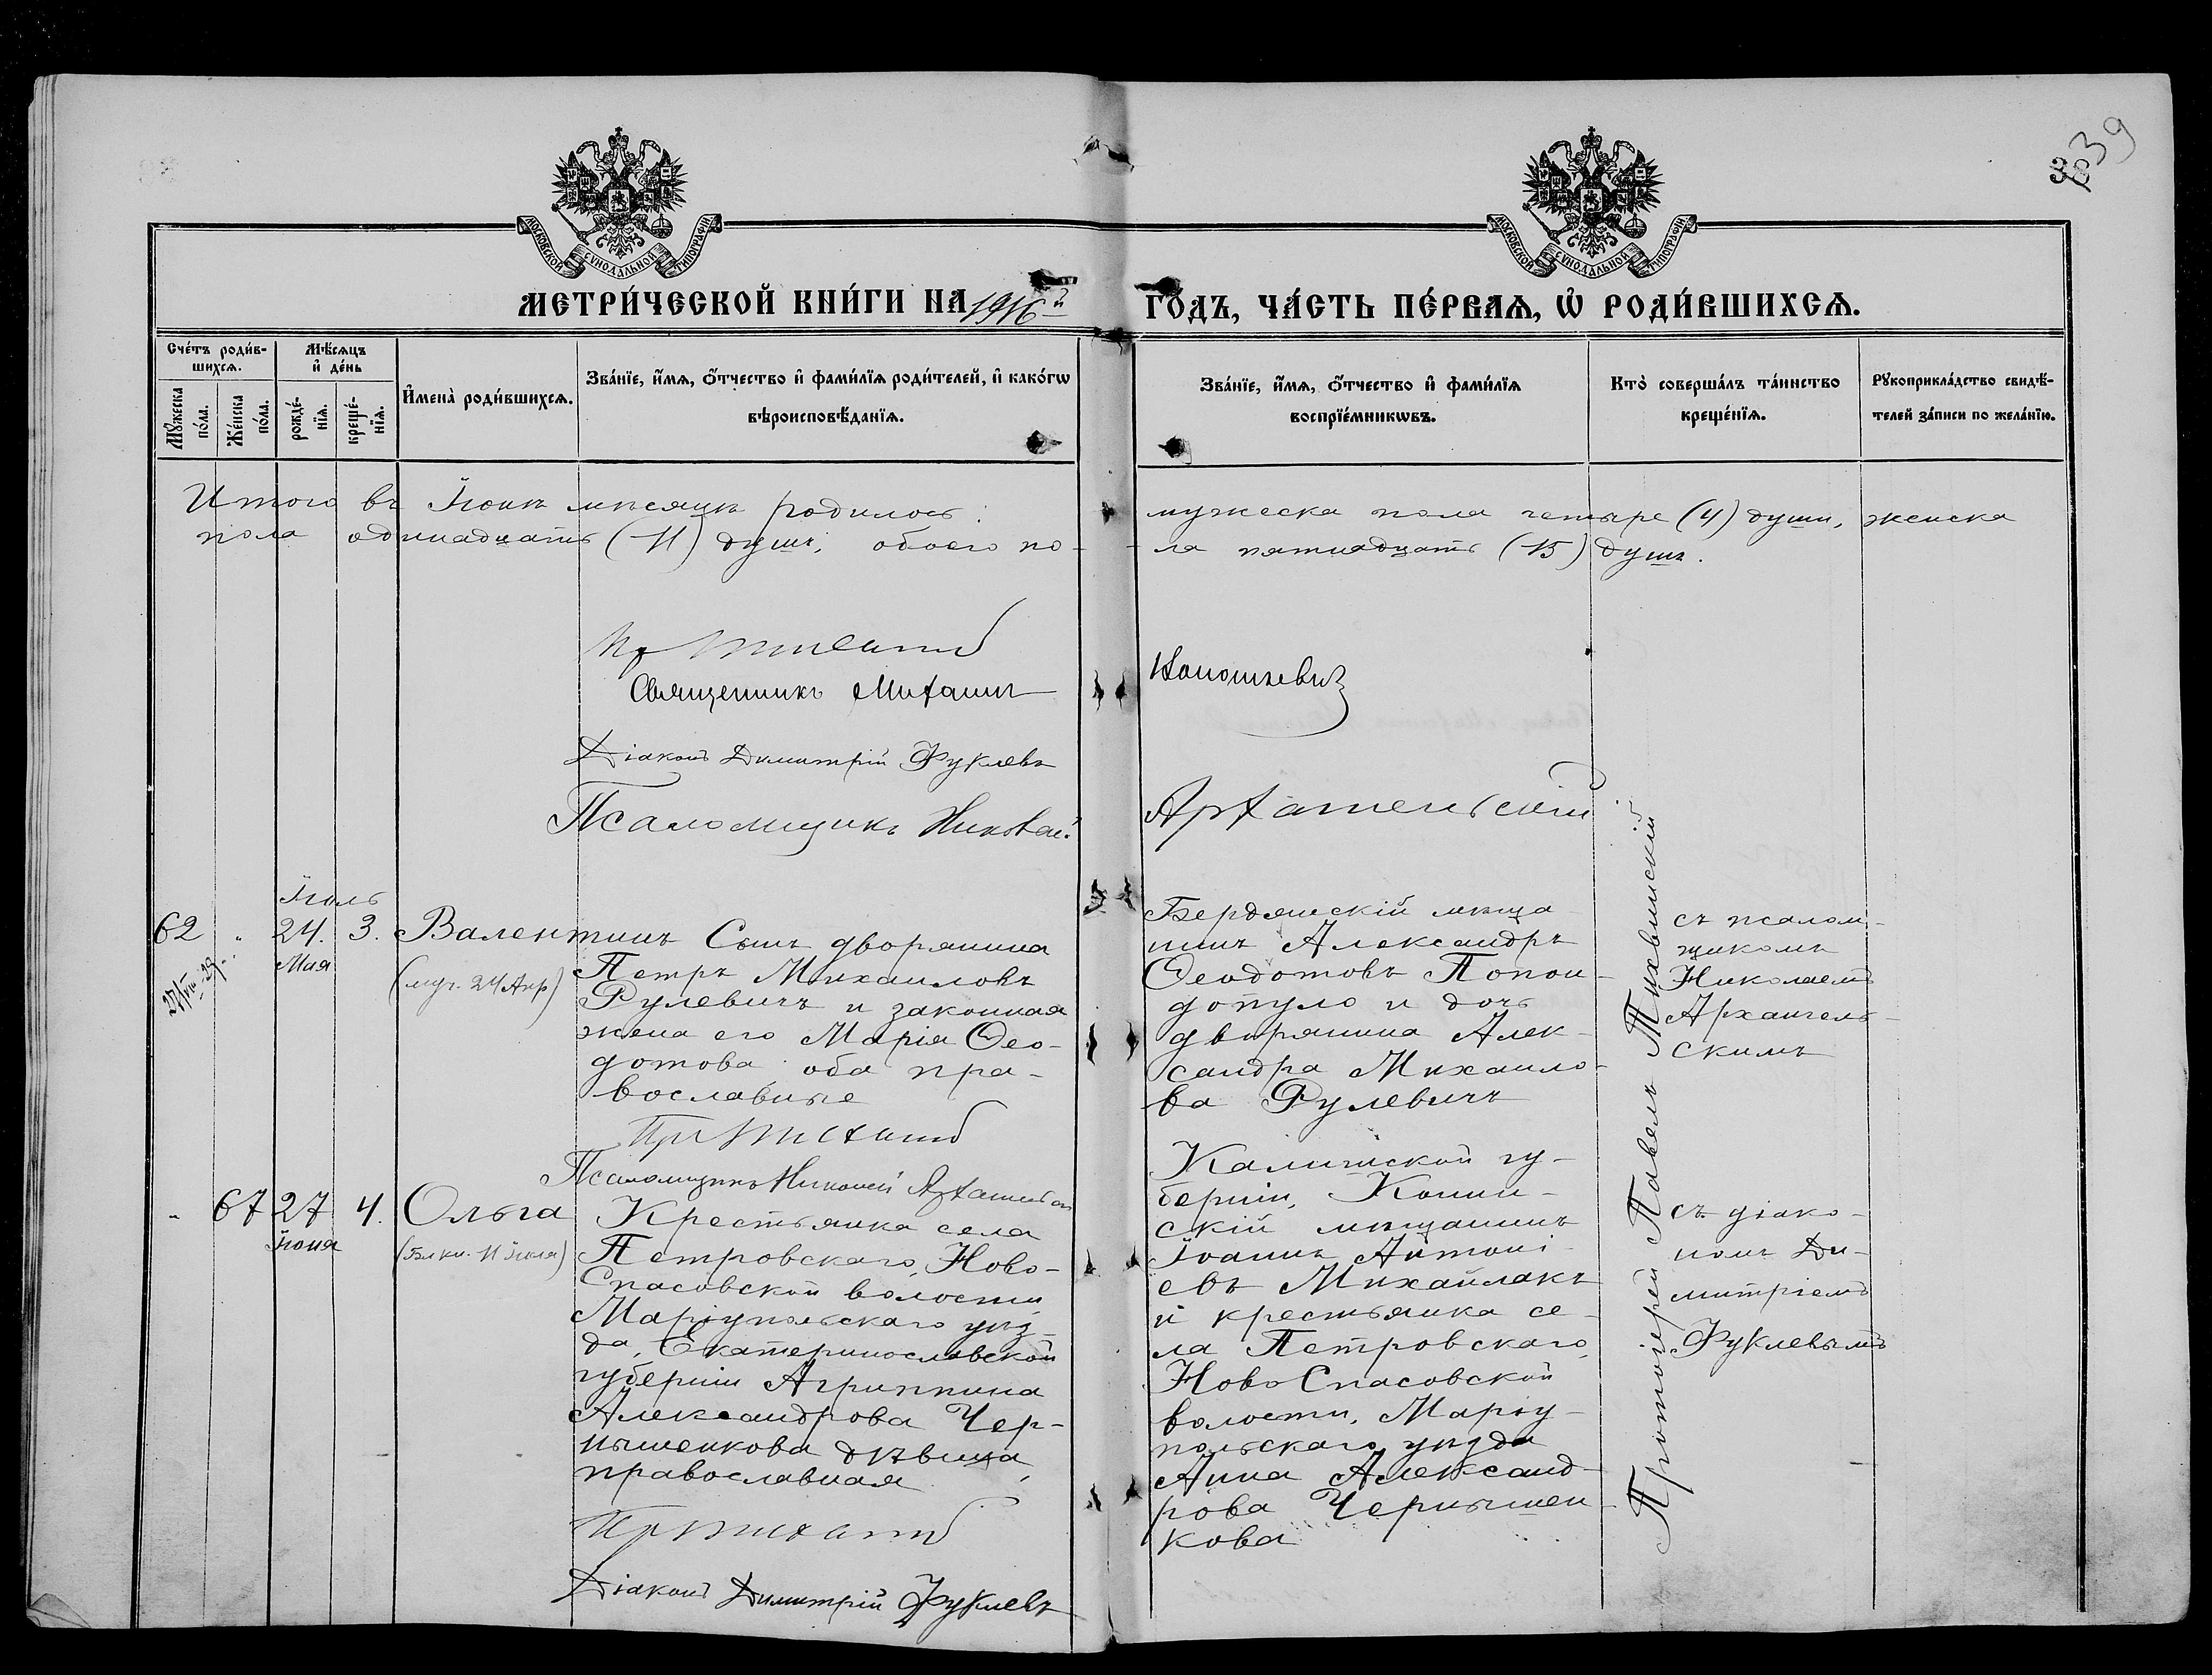 38 39
МОСКОВСКОЙ СѴНОДАЛЬНОЙ ТИПОГРАФІИ
МОСКОВСКОЙ СѴНОДАЛЬНОЙ ТИПОГРАФІИ
МЕТРИ́ЧЕСКОЙ КНИ́ГИ НА 1916й ГО́ДЪ, ЧА́СТЬ ПЕ́РВАѦ, Ѡ҆ РОДИ́ВШИХСѦ.
Сче́тъ роди́в-
шихсѧ.
Мꙋ́жеска по́ла.
Же́нска по́ла.
Мѣ́сѧцъ
и҆ де́нь
рожде́-
нїѧ.
креще́-
нїѧ.
И҆мена̀ роди́вшихсѧ.
Зва́нїе, и҆́мѧ, ѻ҆́тчество и҆ фами́лїѧ роди́телей, и҆ како́гѡ
вѣроисповѣ́данїѧ.
Зва́нїе, и҆́мѧ, ѻ҆́тчество и҆ фами́лїѧ
воспрїе́мникѡвъ.
Кто̀ соверша́лъ та́инство
креще́нїѧ.
Рꙋкоприкла́дство свидѣ́-
телей за́писи по жела́нїю.
Итого въ Іюнѣ мѣсяцѣ родилось: мужеска пола четыре (4) души, женска
пола одинадцать (11) душъ, обоего по- ла пятнадцать (15) душъ.
Священникъ Михаилъ
Діаконъ Димитрій Фуклевъ
Псаломщикъ Николай Архангельскій
Іюль
62 " 24. 3. Валентинъ
Мая
(муч. 24 Апр)
Сынъ дворянина
Петръ Михаиловъ
Рулевичъ и законная
жена его Марія Ѳео-
дотова, оба пра-
вославные
Псаломщикъ Николай
Бердянскій мѣща-
нинъ Александръ
Ѳеодотовъ Попан-
допуло и дочь
дворянина Алек-
сандра Михаило-
ва Рулевичъ
Протоіерей Павелъ Тихвинскій
съ псалом-
щикомъ
Николаемъ
Архангель-
скимъ
" 67 27 4. Ольга
Іюня
(Бл. кн. 11 Іюля)
Крестьянка села
Петровскаго, Ново-
Спасовской волости,
Маріупольскаго уѣз-
да, Екатеринославской
губерніи Агриппина
Александрова Чер-
нышенкова дѣвица,
православная
Діаконъ Димитрій Фуклевъ
Калишской гу-
берніи, Конин-
скій мѣщанинъ
Іоаннъ Антоні-
евъ Михайлакъ
и крестьянка се-
ла Петровскаго,
Ново Спасовской
волости, Маріу-
польскаго уѣзда
Анна Александ-
рова Чернышен-
кова
съ діако-
номъ Ди-
митріемъ
Фуклевымъ